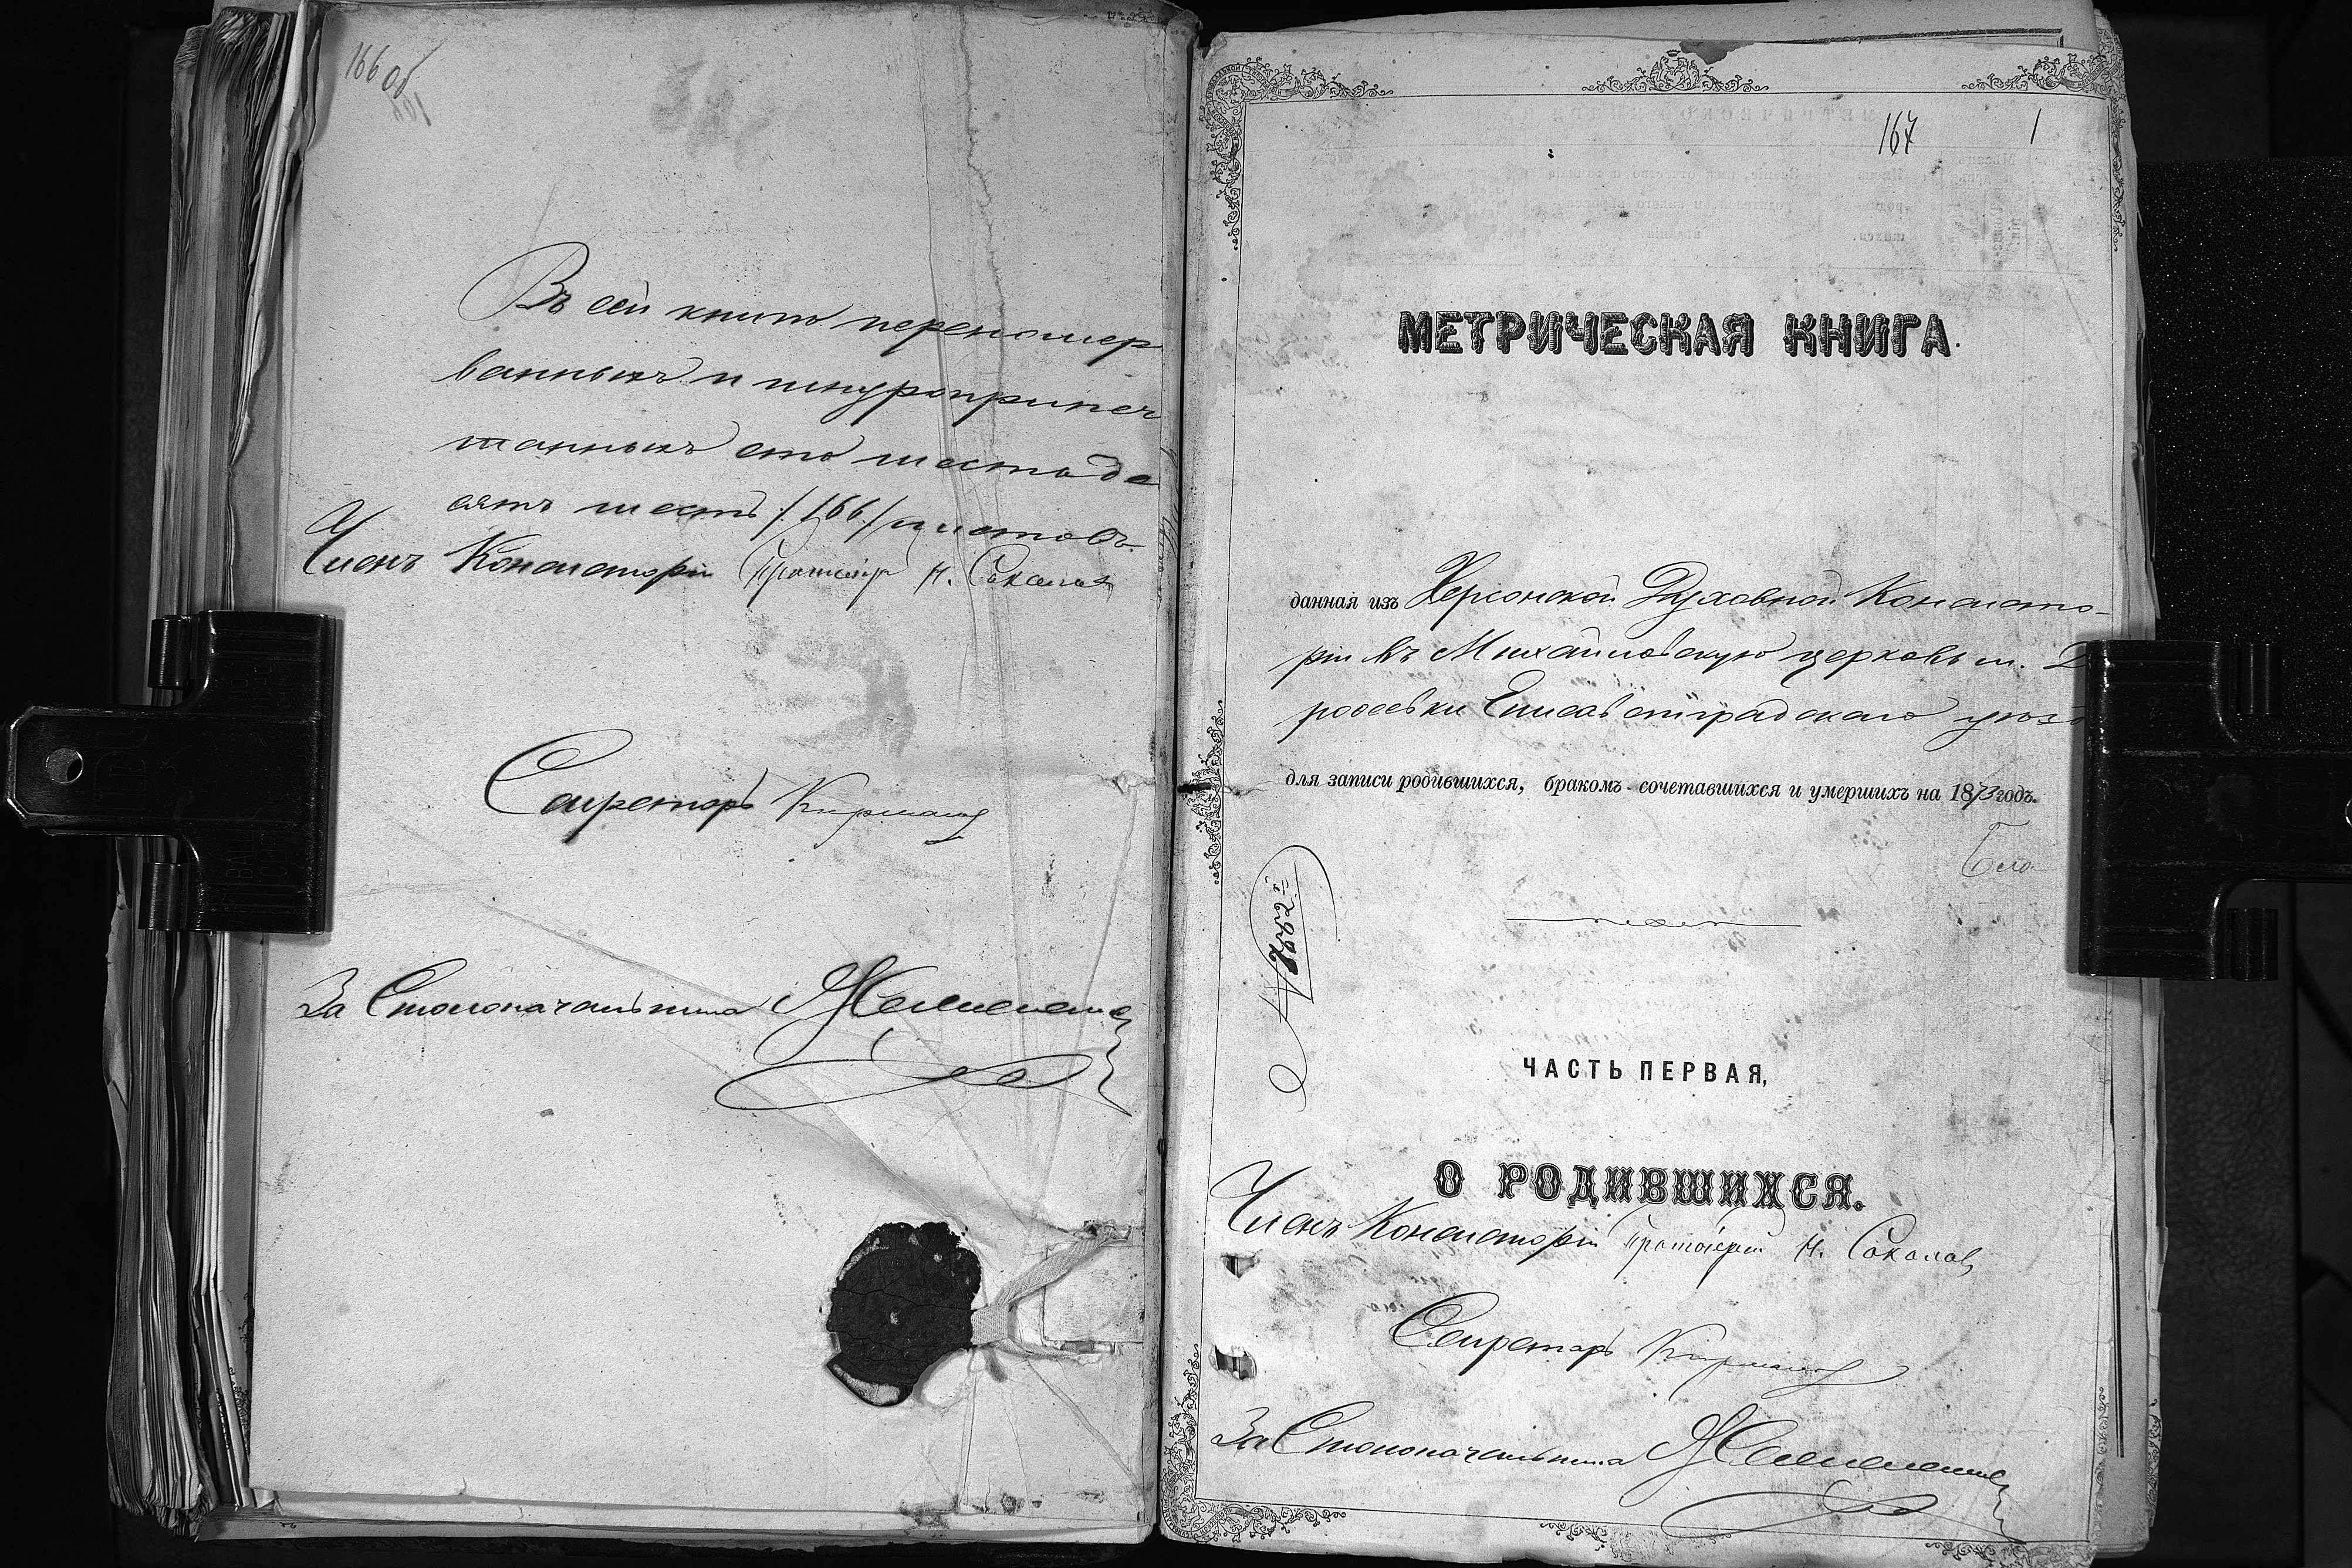 166 об
Въ сей книгѣ перенумеро
ванныхъ и шнуроприпеча
танныхъ сто шестьде
сятъ шесть /166/ листовъ.
Членъ Консисторіи Протоіерей Н. Соколовъ
Секретарь
За Столоначальника
167
1
МЕТРИЧЕСКАЯ КНИГА.
данная изъ Херсонской Духовной Консисто-
ріи въ Михайловскую церковь м.
Елисаветградскаго уѣзд
для записи родившихся, бракомъ-сочетавшихся и умершихъ на 1873 годъ.
ЧАСТЬ ПЕРВАЯ,
О РОДИВШИХСЯ.
Членъ Консисторіи Протоіерей Н. Соколовъ
Секретарь
За Столоначальника